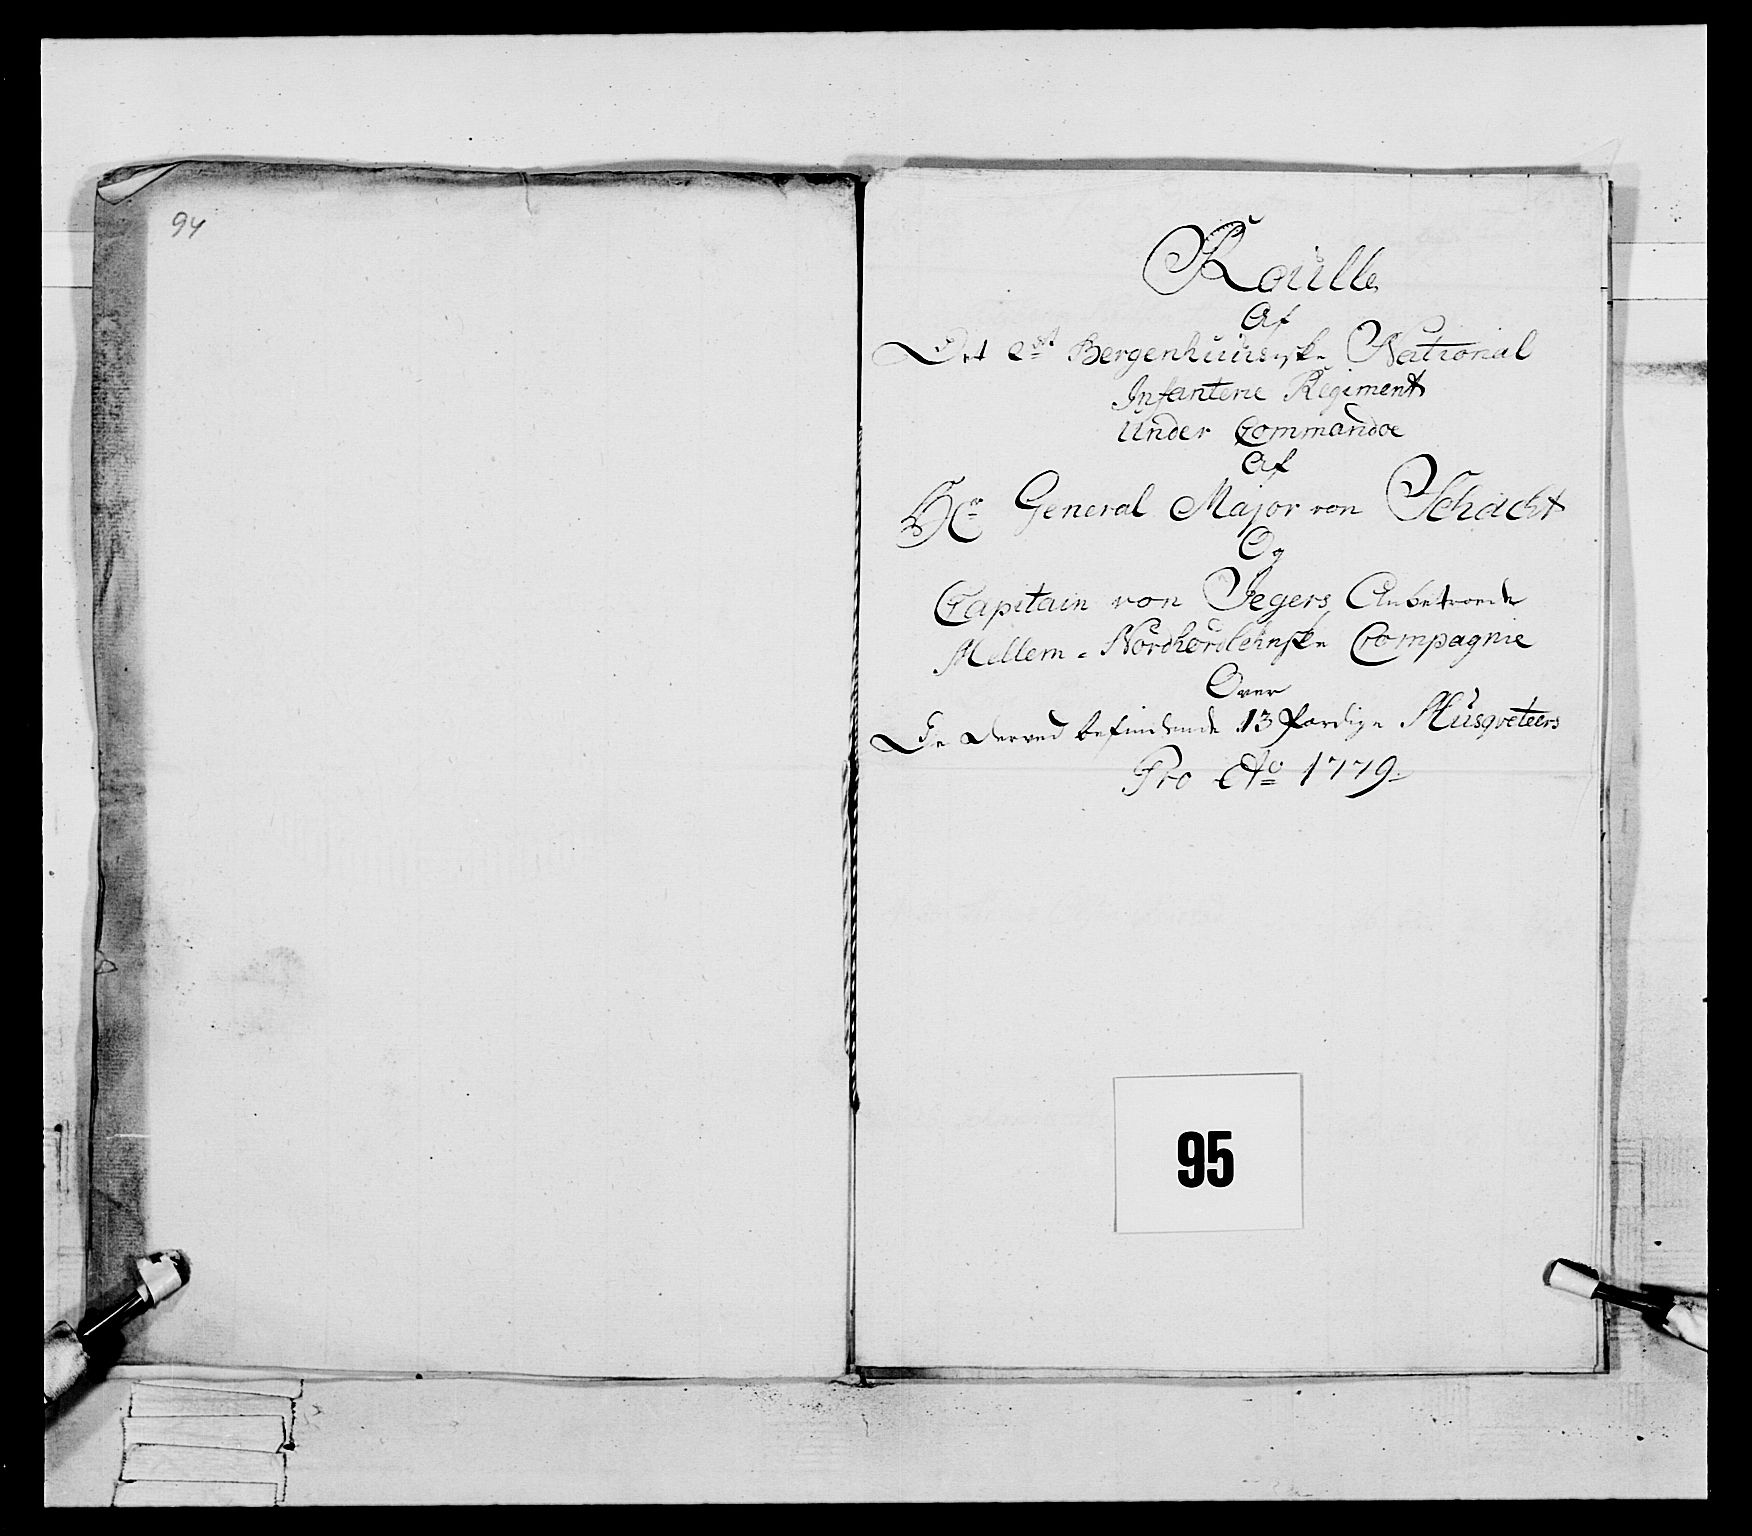 94
Roulle
Af
Det 2det Bergenhuusiske National
Infanterie Regiment
Under Commandoe
Af
Hr General Major von Schacht
Og
Capitain von Jegers Anbetroede
Mellem-Nordhordlehnske Compagnie
Over
De derved befindende 13 færdige Musqveteers
Pro Ao 1779.
95